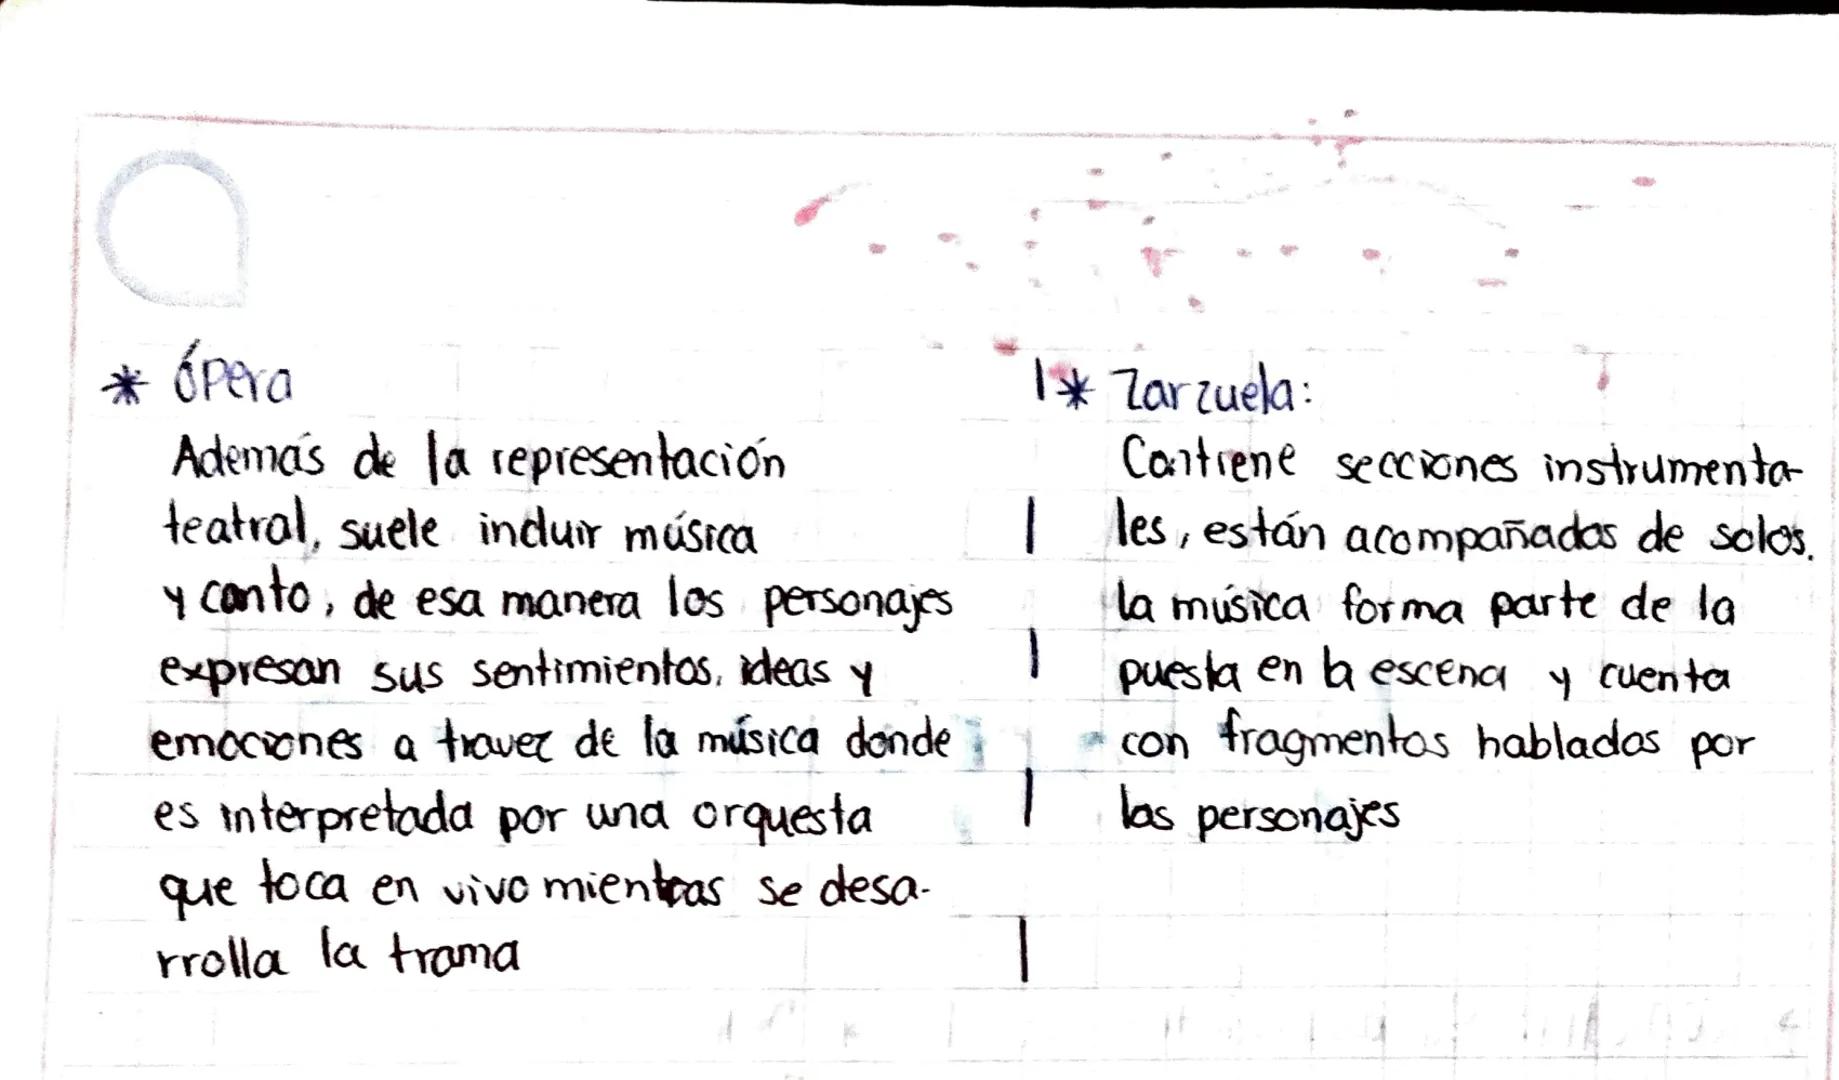 * Ópera
Además de la representación
teatral, suele incluir música
y canto, de esa manera los personajes
expresan sus sentimientos, ideas y
emociones a travez de la música donde
es interpretada por una orquesta
que toca en vivo mientras se desa-
rrolla la trama
* Zarzuela:
Contiene secciones instrumenta-
les, están acompañados de solos.
la música forma parte de la
puesta en la escena y cuenta
con fragmentos hablados por
los personajes